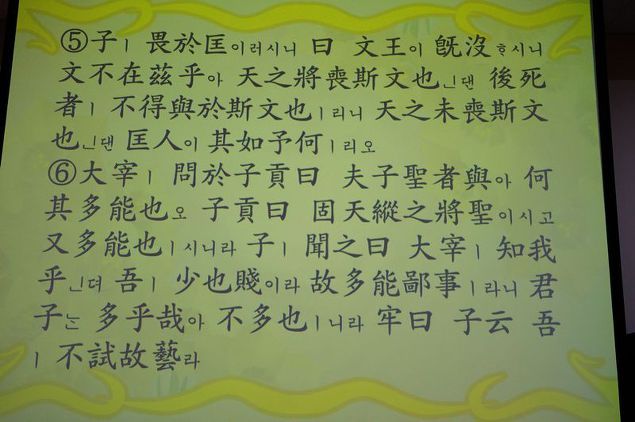 ⑤子ㅣ 畏於匡이러시니 曰 文王이 旣沒ᄒᆞ시니
文不在玆乎아 天之將喪斯文也ᅟᅵᆫ댄 後死
者ㅣ 不得與於斯文也ㅣ리니 天之未喪斯文
也ᅟᅵᆫ댄 匡人이 其如予何ㅣ리오
⑥大宰ㅣ 問於子貢曰 夫子聖者與아 何
其多能也오 子貢曰 固天縱之將聖이시고
又多能也ㅣ시니라 子ㅣ 聞之曰 大宰ㅣ 知我
乎ᅟᅵᆫ뎌 吾ㅣ 少也賤이라 故多能鄙事ㅣ라니 君
子ᄂᆞᆫ 多乎哉아 不多也ㅣ니라 牢曰 子云 吾
ㅣ 不試故藝라